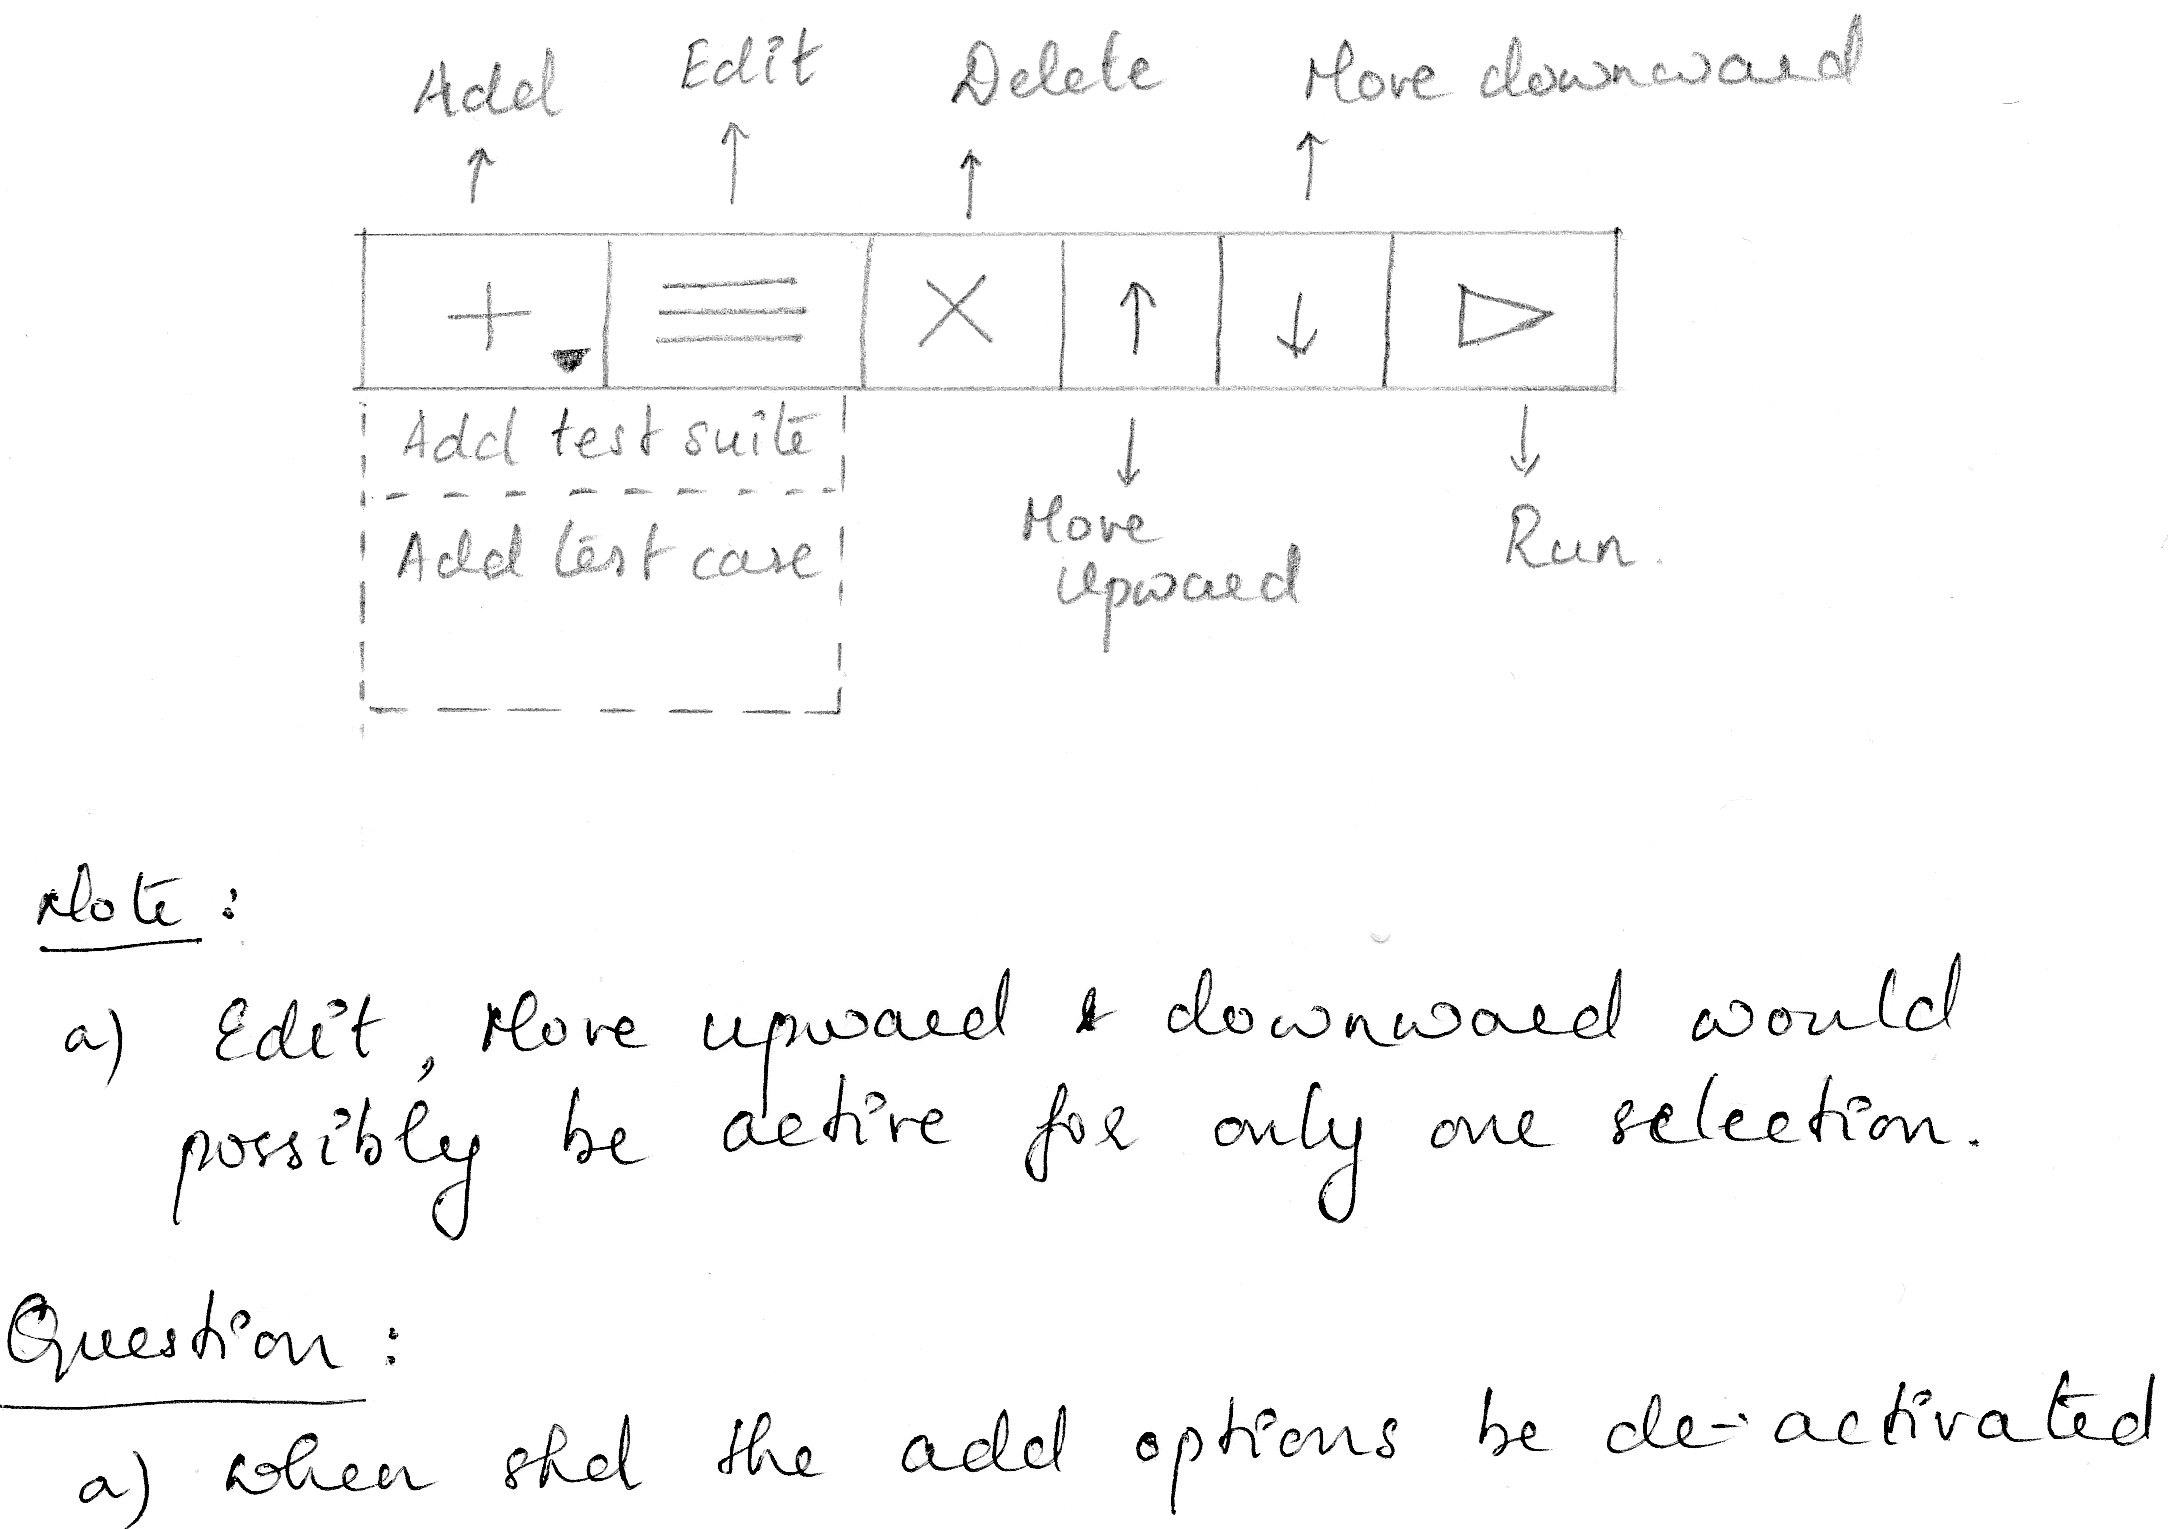 Add Edit Delete Move downward
Add test suite
Add test case
Move
upward
Run.
Note :
a) Edit, Move upward & downward would
possibly be active for only one selection.
Question :
a) When shd the add options be de-activated